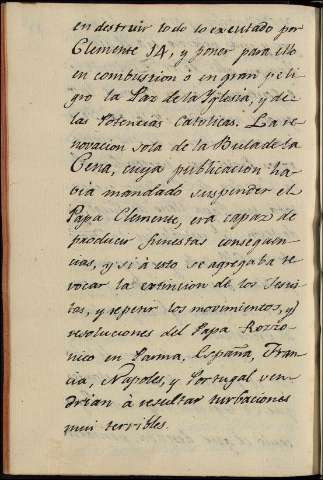 en destruir todo lo executado por
Clemente 14, y poner para ello
en combustion ó en gran peli
gro la Paz de la Yglesia, y de
las Potencias Catolicas. La re
novacion sola de la Bula de la
Cena, cuya publicacion ha
via mandado suspender el
Papa Clemente, era capaz de
producir funestas consequen
cias, y si à esto se agregaba re
vocar la extincion de los Jesui
tas, y repetir los movimientos, y
resoluciones del Papa Rezzo
nico en Parma, España, Fran
cia, Napoles, y Portugal ven
drian à resultar turbaciones
mui terribles.